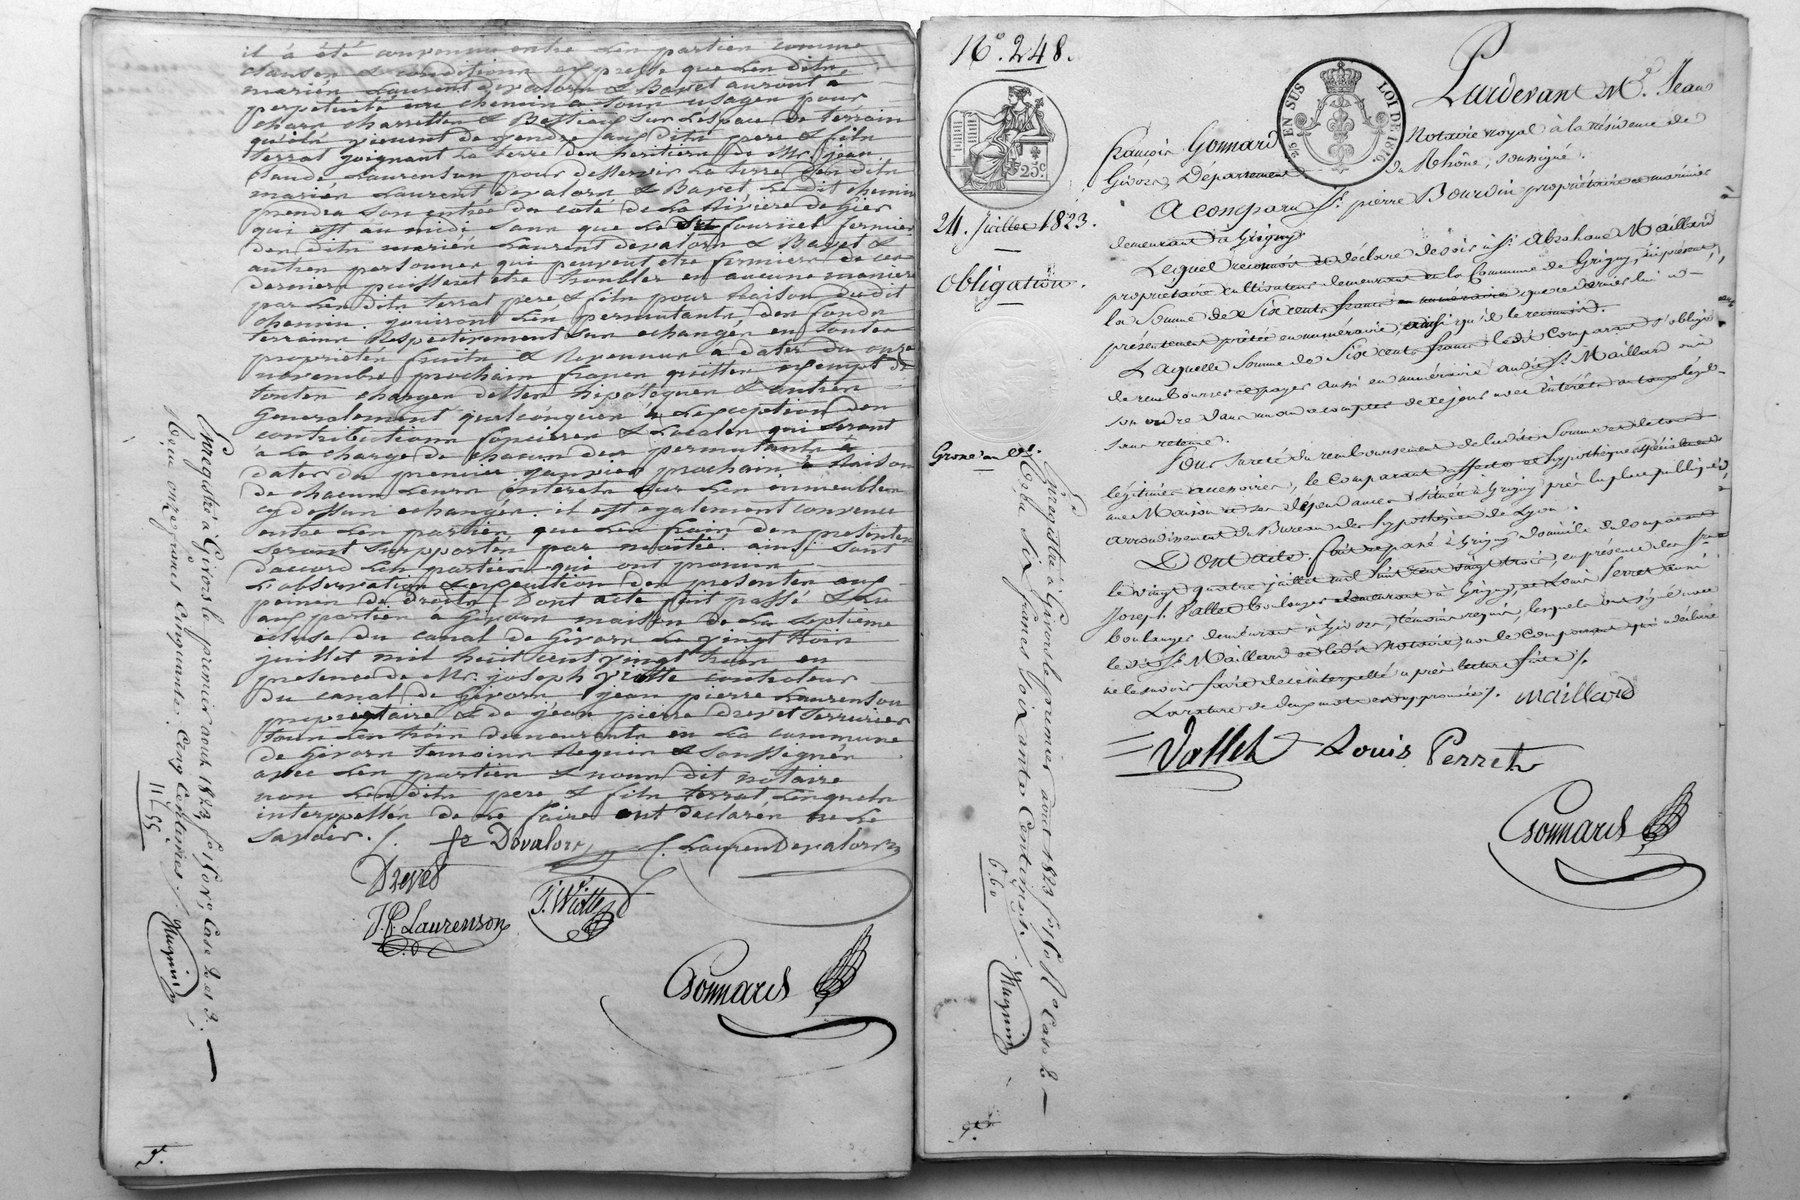 il a été convenu entre les parties comme
clauses & conditions expresse que les dits
mariés Laurent devalors & Bavet auront à
perpetuité un chemin a tous usages pour
chars charrettes & Bestiaux sur l'espace de terrain
qu'ils viennent de vendre aus dits pere & fils
terrat joignant la terre des heritiers de Mr. jean
claude Laurenson pour desservir la terre des dits
mariés Laurent devalors & Bavet le dit chemin
prendra son entrée du coté de la Rivière de Gier
qui est au midi sans que le fournet fermier
des dits mariés Laurent devalors & Bavet &
autres personnes qui peuvent etre fermiers de ces
derniers puissent etre troublés en aucune maniere
par les dits terrat pere & fils pour raison du dit
chemin. jouiront les permutants des fonds
terrains Respectivement sur echangés en toutes
proprietés fruits & Revenus à dater du onze
novembre prochain francs quittes exempt de
toutes charges dettes hipotèques & autres
Generalement quelconques à l'exception des
contributions foncieres & Locales qui seront
a la charge de chacun des permutants à
dater du premier janvier prochain à Raison
de chacun leurs interets sur les immeubles
cy dessus echangés. il est egalement convenu
entre les parties que les frais des presentes
seront supportés par moitié. ainsi sont
d'accord les parties qui ont promis
l'observation & execution des presentes aux
peines de droits. Dont acte fait passé & lu
aux parties à Givors maison de la septième
ecluse du canal de Givors le vingt trois
juillet mil huit cent vingt trois en
presence de Mr. joseph Viotte controleur
du canal de Givors jean pierre Laurenson
proprietaire & de jean pierre drevet serrurier
tous les trois demeurants en la commune
de Givors temoins Requis & soussignés
avec les parties & nous dit notaire
non les dits pere & fils terrat lesquels
interpellés de le faire ont declarés ne le
savoir. /.
fe Dovalors
f. LaurenDevalors
Drevet
J. Viotte
J.P. Laurenson
Gonnard
Enregistré à Givors le premier aout 1823 fo 150 Vo Case 2 et 3.
Reçu onze francs cinquante-cinq centimes /.
Magnin
11.55
N.° 248.
25 EN SUS
LOI DE 1816
25c
24. Juillet 1823.
Obligation.
Grosse en
Pardevant Me. Jean
françois Gonnard Notaire royal à la résidence de
Givors, Département du Rhône, soussigné.
A comparu Sr. pierre Bourdin propriétaire et marinier
demeurant à Grigny
Lequel reconnoit et déclare devoir à Sr. Abraham Maillard
propriétaire cultivateur demeurant en la Commune de Grigny, ici présent,
la somme de Six cents francs en numéraire que ce dernier lui a
présentement prêtée en numéraire, ainsi qu'il le reconnoit.
Laquelle somme de Six cents francs ledit Comparant s'oblige
de rembourser et payer aussi en numéraire audit Sr. Maillard ou à
son ordre dans un an a compter de ce jour avec intérêts au taux légal
sans retenue.
Pour sureté du remboursement de ladite somme et de tous
légitimes accessoires, le comparant affecte et hypothèque spécialement
une Maison et ses dépendances située à Grigny près la place publique,
arrondissement du Bureau des hypothèques de Lyon.
Dont acte. fait et passé à Grigny domicile du comparant
le vingt quatre juillet mil huit cent vingt trois, en présence des Srs
Joseph Vallet boulanger demeurant à Grigny, et Louis Perret aussi
boulanger demeurant à Givors, témoins requis, lesquels ont signé avec
ledit Sr. Maillard et ledit Notaire, non le Comparant qui a déclaré
ne le savoir faire de ce interpellé après lecture faite /.
La rature de deux mots est approuvée /.
maillard
Vallet Louis Perret
Gonnard
Enregistré à Givors le premier aout 1823 fo 150 Ro Case 2
Reçu six francs soixante centimes /.
Magnin
6.60